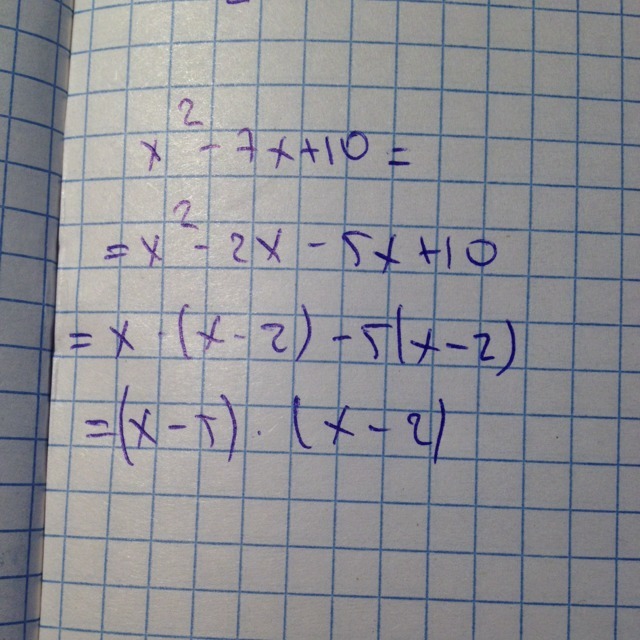 x² - 7x+10 =
= x² - 2x - 5x +10
= x · (x - 2) - 5(x - 2)
= (x - 5) · (x - 2)